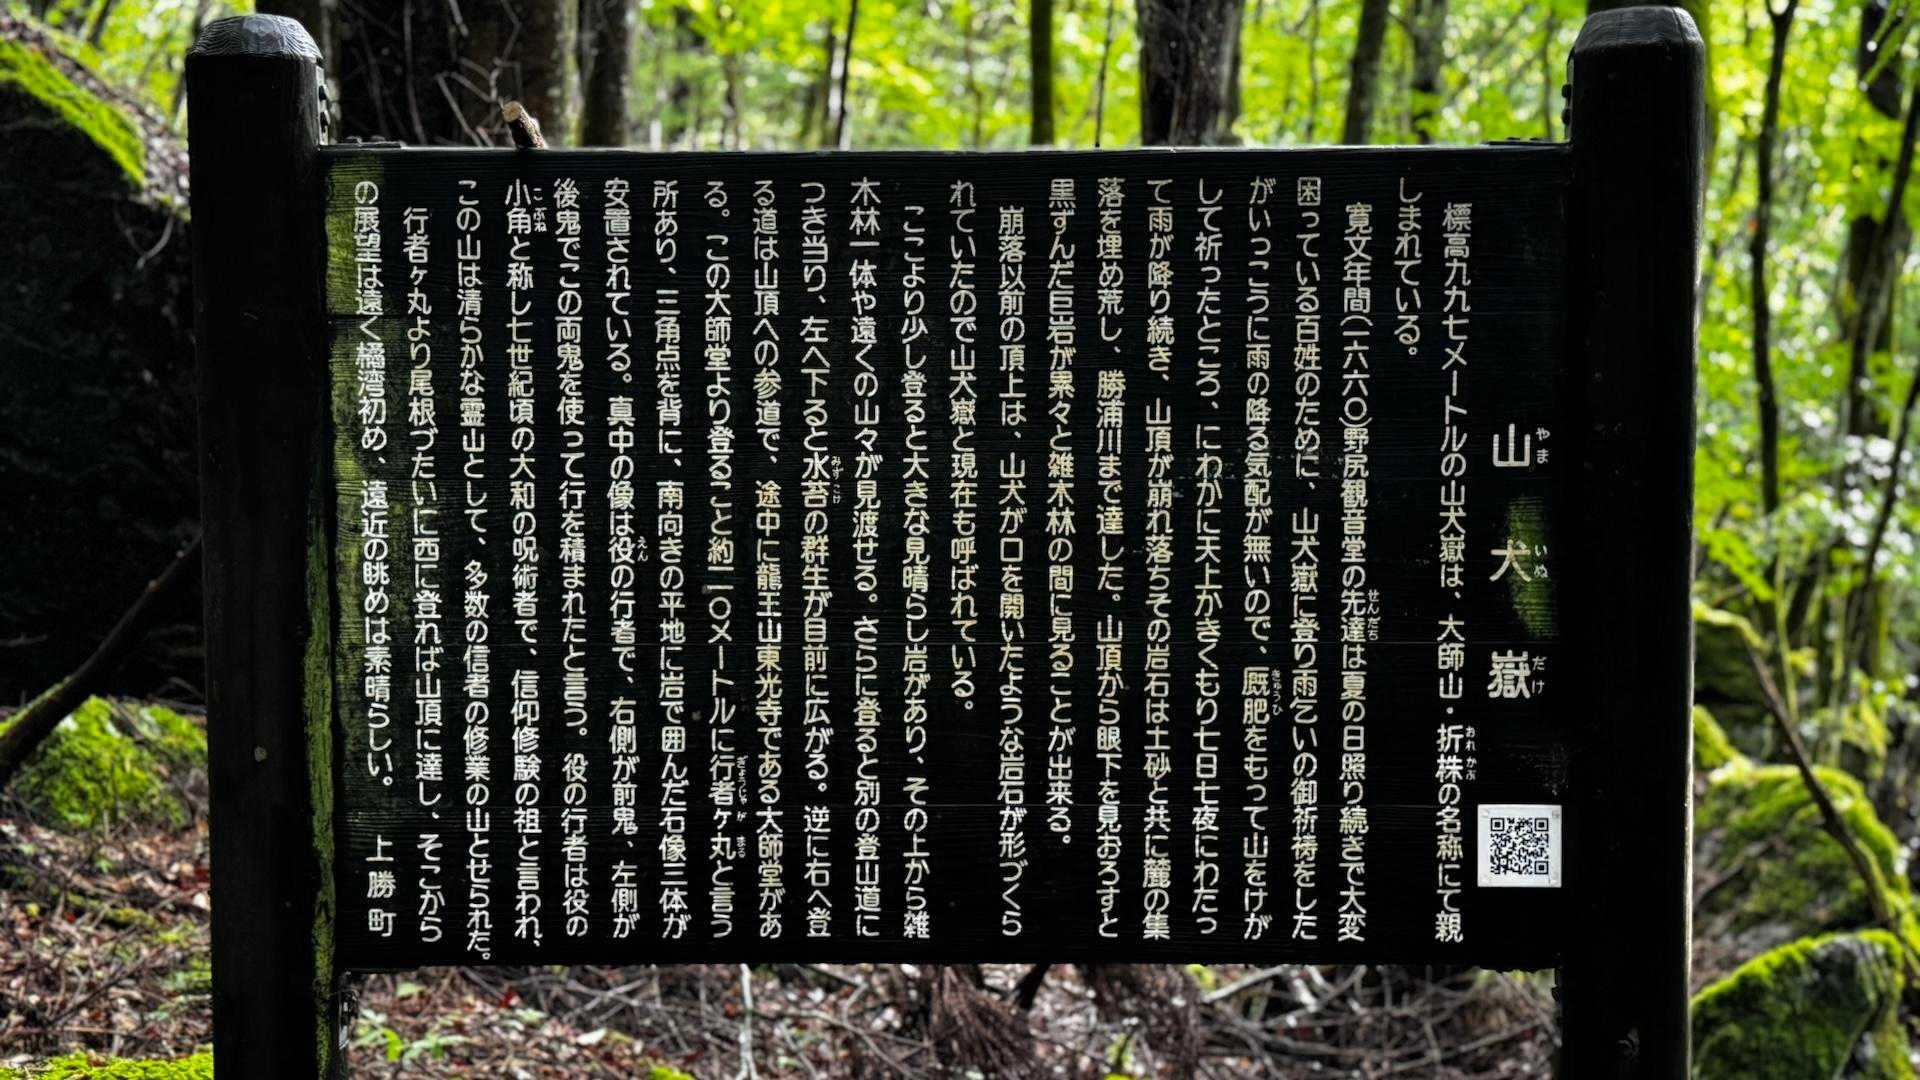 山犬嶽
やまいぬだけ
標高九九七メートルの山犬嶽は、大師山・折株の名称にて親
おれかぶ
しまれている。
寛文年間(一六六〇)野尻観音堂の先達は夏の日照り続きで大変
せんだち
困っている百姓のために、山犬嶽に登り雨乞いの御祈祷をした
がいっこうに雨の降る気配が無いので、厩肥をもって山をけが
きゅうひ
して祈ったところ、にわかに天上かきくもり七日七夜にわたっ
て雨が降り続き、山頂が崩れ落ちその岩石は土砂と共に麓の集
落を埋め荒し、勝浦川まで達した。山頂から眼下を見おろすと
黒ずんだ巨岩が累々と雑木林の間に見ることが出来る。
崩落以前の頂上は、山犬が口を開いたような岩石が形づくら
れていたので山犬嶽と現在も呼ばれている。
ここより少し登ると大きな見晴らし岩があり、その上から雑
木林一体や遠くの山々が見渡せる。さらに登ると別の登山道に
つき当り、左へ下ると水苔の群生が目前に広がる。逆に右へ登
みずこけ
る道は山頂への参道で、途中に龍王山東光寺である大師堂があ
る。この大師堂より登ること約二〇メートルに行者ヶ丸と言う
ぎょうじゃがまる
所あり、三角点を背に、南向きの平地に岩で囲んだ石像三体が
安置されている。真中の像は役の行者で、右側が前鬼、左側が
えん
後鬼でこの両鬼を使って行を積まれたと言う。役の行者は役の
小角と称し七世紀頃の大和の呪術者で、信仰修験の祖と言われ、
こぶね
この山は清らかな霊山として、多数の信者の修業の山とせられた。
行者ヶ丸より尾根づたいに西に登れば山頂に達し、そこから
の展望は遠く橘湾初め、遠近の眺めは素晴らしい。
上勝町